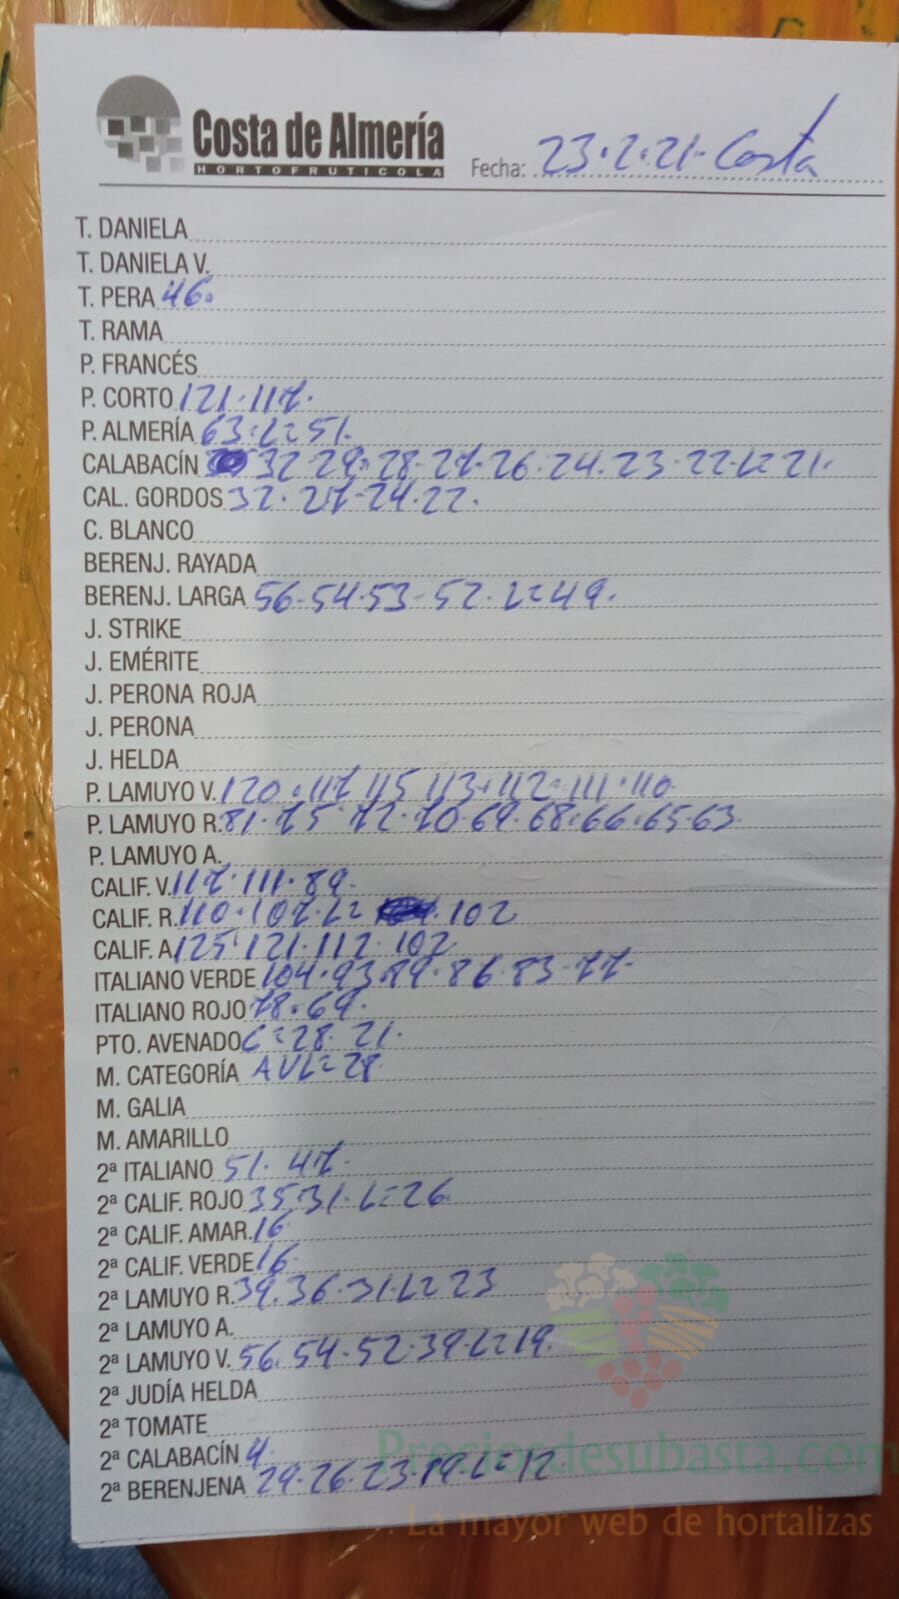 Costa de Almería
HORTOFRUTICOLA
Fecha: 23·2·21· Costa
T. DANIELA
T. DANIELA V.
T. PERA 46.
T. RAMA
P. FRANCÉS
P. CORTO 121·117.
P. ALMERÍA 63·L=51.
CALABACÍN 32·29·28·27·26·24·23·22·L=21.
CAL. GORDOS 32·27·24·22.
C. BLANCO
BERENJ. RAYADA
BERENJ. LARGA 56·54·53·52·L=49.
J. STRIKE
J. EMÉRITE
J. PERONA ROJA
J. PERONA
J. HELDA
P. LAMUYO V. 120·117·115·113·112·111·110
P. LAMUYO R. 81·75·72·70·69·68·66·65·63
P. LAMUYO A.
CALIF. V. 117·111·89.
CALIF. R. 110·107·L= 102
CALIF. A 125·121·112·102
ITALIANO VERDE 104·93·89·86·83·77
ITALIANO ROJO 78·69.
PTO. AVENADO C=28·21.
M. CATEGORÍA AVL=28
M. GALIA
M. AMARILLO
2ª ITALIANO 51·47.
2ª CALIF. ROJO 35·31·L=26
2ª CALIF. AMAR. 16
2ª CALIF. VERDE 16
2ª LAMUYO R. 39·36·31·L=23
2ª LAMUYO A.
2ª LAMUYO V. 56·54·52·39·L=19.
2ª JUDÍA HELDA
2ª TOMATE
2ª CALABACÍN 4
2ª BERENJENA 29·26·23·19·L=12
Preciosdesubasta.com
La mayor web de hortalizas